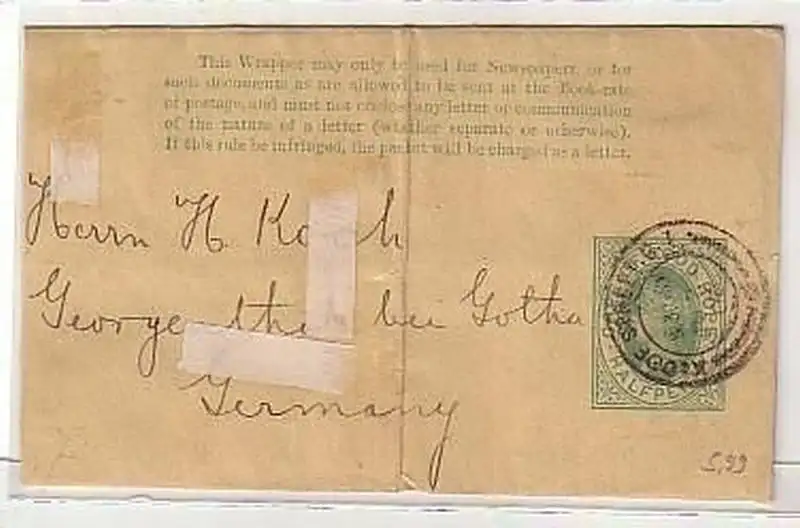 This Wrapper may only be used for Newspapers, or for
such documents as are allowed to be sent at the Book-rate
of postage, and must not enclose any letter or communication
of the nature of a letter (whether separate or otherwise).
If this rule be infringed, the packet will be charged as a letter.
Herrn H.
bei Gotha
Germany
HALFPE
5,99